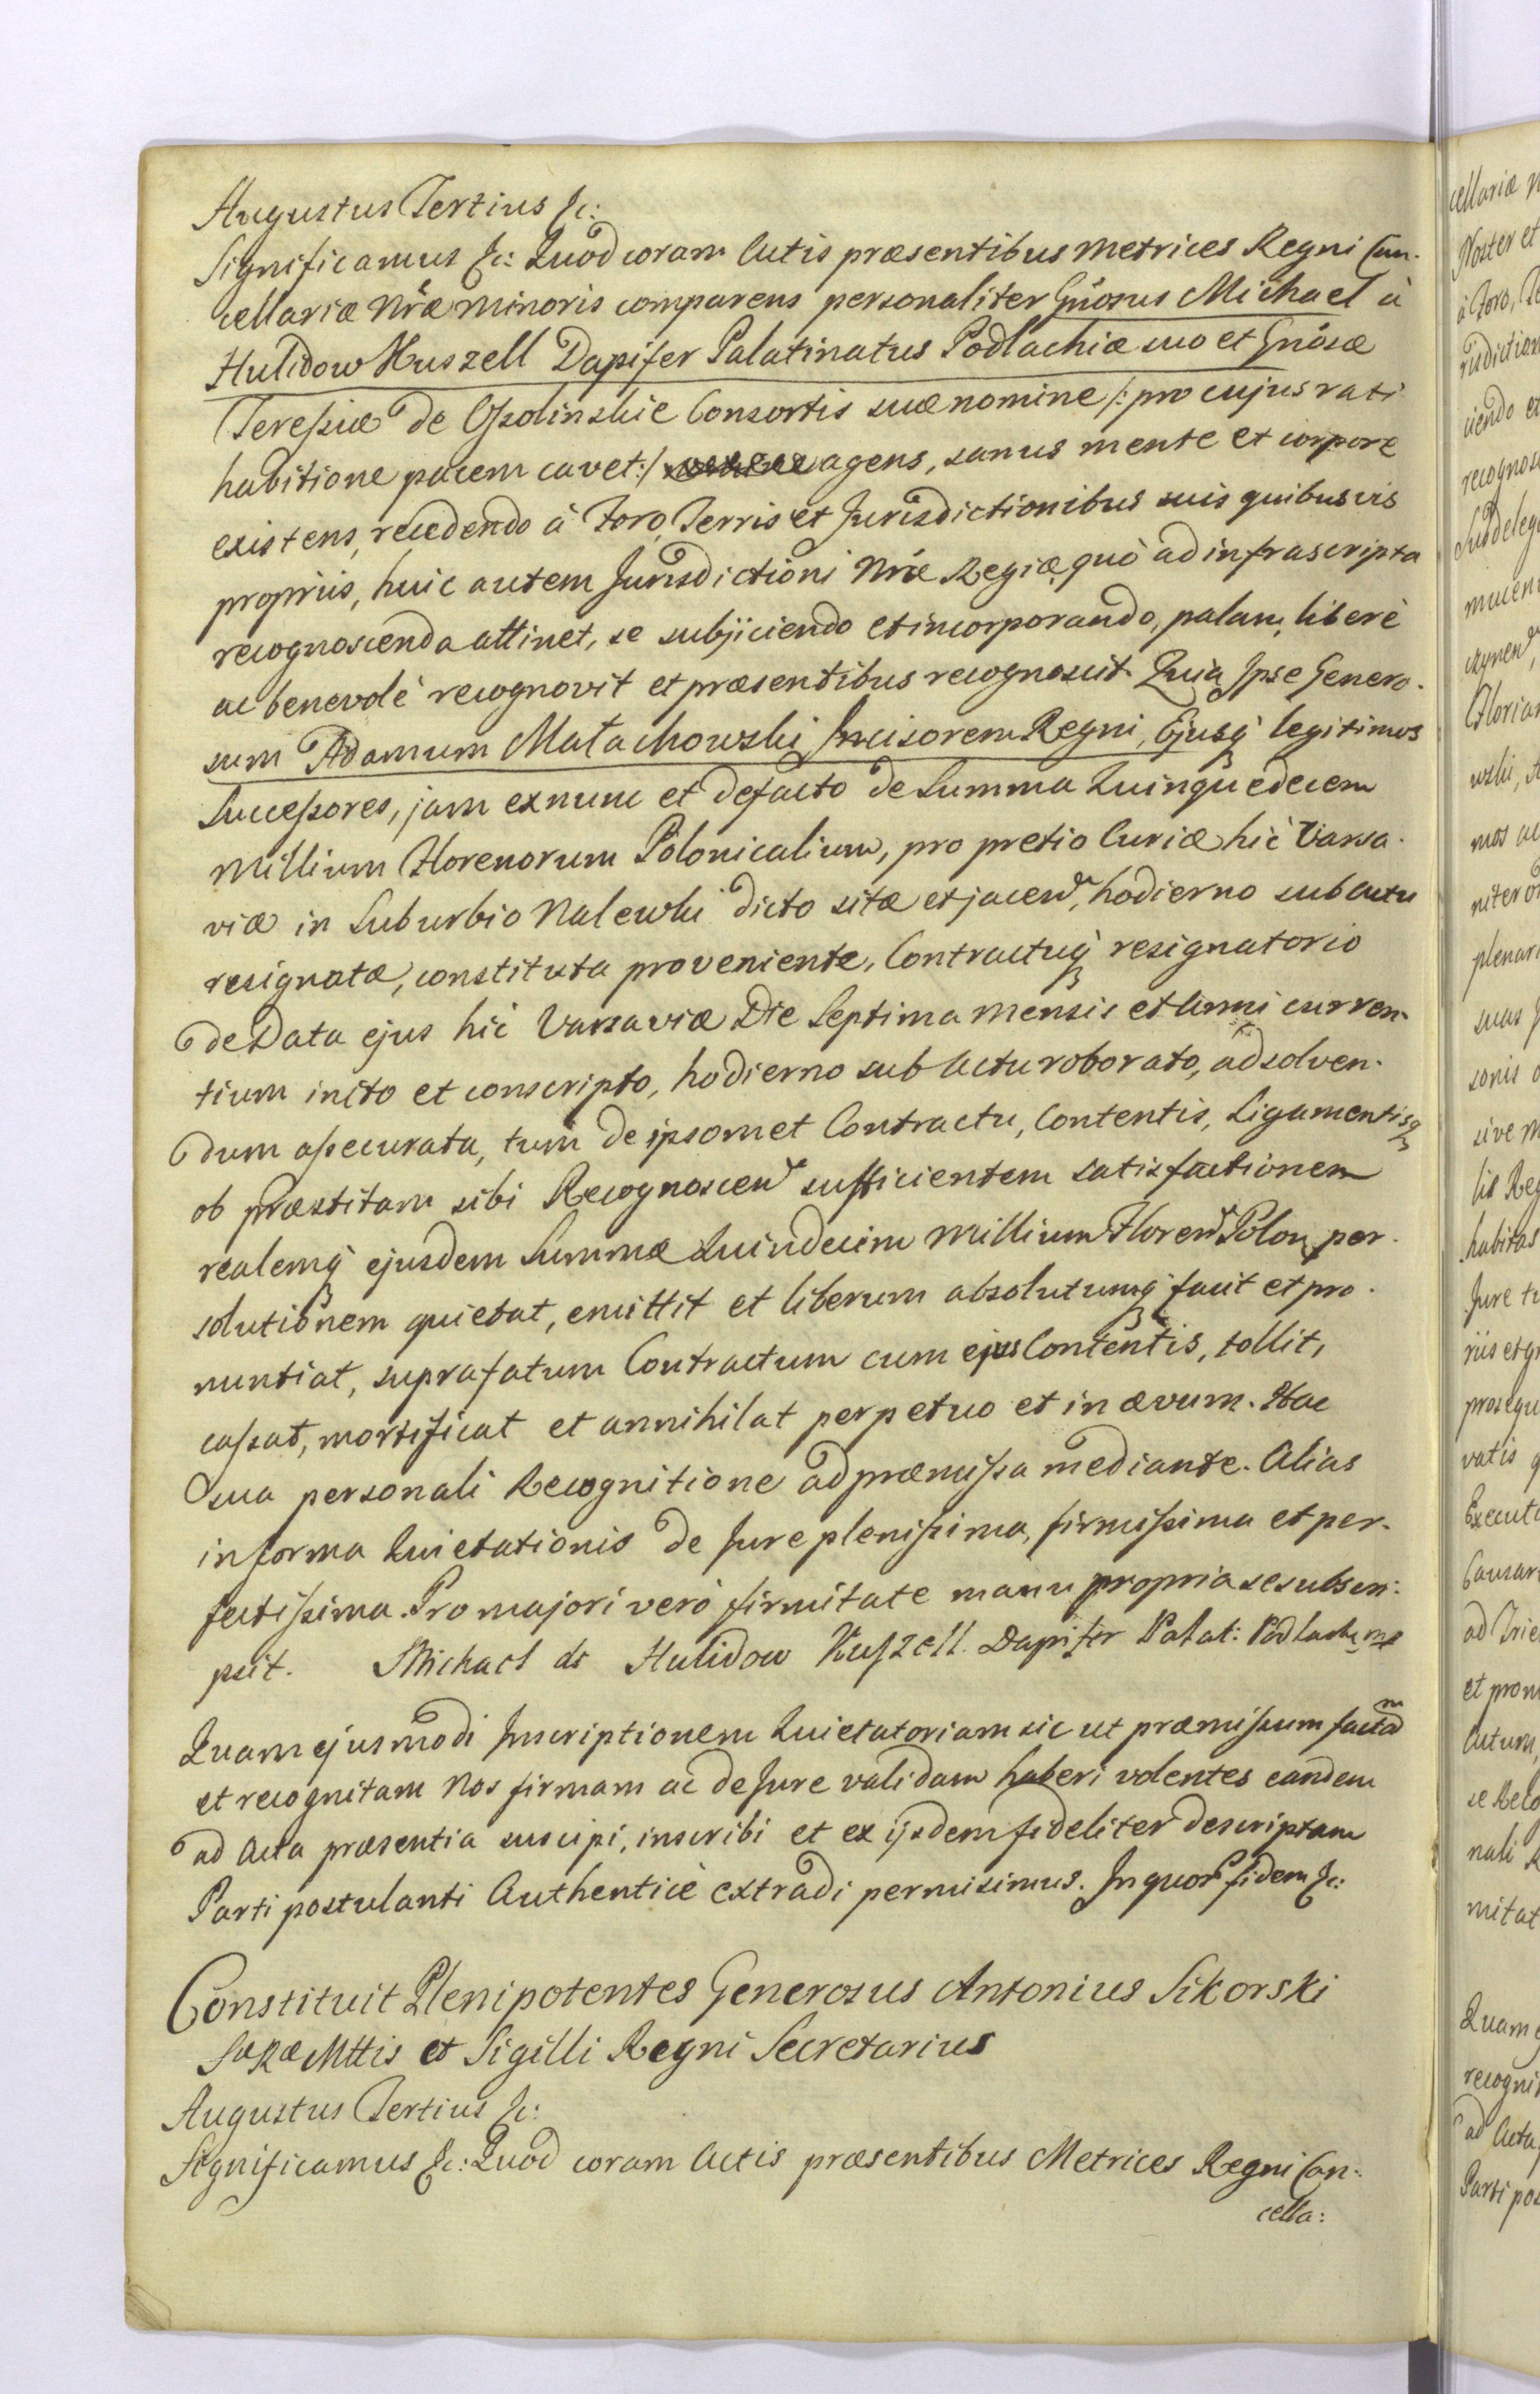 Augustus Tertius &c:
Significamus &c: Quod coram Actis præsentibus Metrices Regni Can-
cellariæ Nræ Minoris comparens personaliter Gñosus Michael à
Hulidow Kuszell Dapifer Palatinatus Podlachiæ suo et Gñosæ
Teressiæ de Ossolinskie Consortis suæ nomine /: pro cujus rati
habitione pacem cavet :/ agens, sanus mente et corpore
existens, recedendo à Foro, Terris et Jurisdictionibus suis quibusvis
propriis, huic autem Jurisdictioni Nræ Regiæ, quò ad infrascripta
recognoscenda attinet, se subjiciendo et incorporando, palam, liberè
ac benevolè recognovit et præsentibus recognoscit. Quia Ipse Genero-
sum Adamum Małachowski Incisorem Regni, Ejusq legitimos
Successores, jam ex nunc et defacto de Summa Quinquedecem
Millium Florenorum Polonicalium, pro pretio Curiæ hic Varsa-
viæ in Suburbio Nalewki dicto sitæ et jacen, hodierno sub Actu
resignatæ, constituta proveniente, Contractuq resignatorio
de Data ejus hic Varsaviæ Die Septima Mensis et Anni curren-
tium inito et conscripto, hodierno sub Actu roborato, ad solven-
dum assecurata, tum de ipsomet Contractu, Contentis, Ligamentisq
ob præstitam sibi Recognoscen sufficientem satisfactionem
realemq ejusdem Summæ Quindecim Millium Floren Polon per-
solutionem quietat, emittit et liberum absolutumq facit et pro-
nuntiat, suprafatum Contractum cum ejus Contentis, tollit,
cassat, mortificat et annihilat perpetuo et in ævum. Hac
sua personali Recognitione ad præmissa mediante. Alias
in forma Quietationis de Jure plenissima, firmissima et per-
fectissima. Pro majori verò firmitate manu propria se subscri-
psit. Michael de Hulidow Kuszell Dapifer Palat: Podlach mp
Quam ejusmodi Inscriptionem Quietatoriam sic ut præmissum factam
et recognitam Nos firmam ac de Jure validam haberi volentes eandem
ad Acta præsentia suscipi, inscribi et ex ijsdem fideliter descriptam
Parti postulanti Authenticè extradi permisimus. In quor fidem &c:
Constituit Plenipotentes Generosus Antonius Sikorski
SæRæMttis et Sigilli Regni Secretarius
Augustus Tertius &c:
Significamus &c: Quod coram Actis præsentibus Metrices Regni Can-
cella: